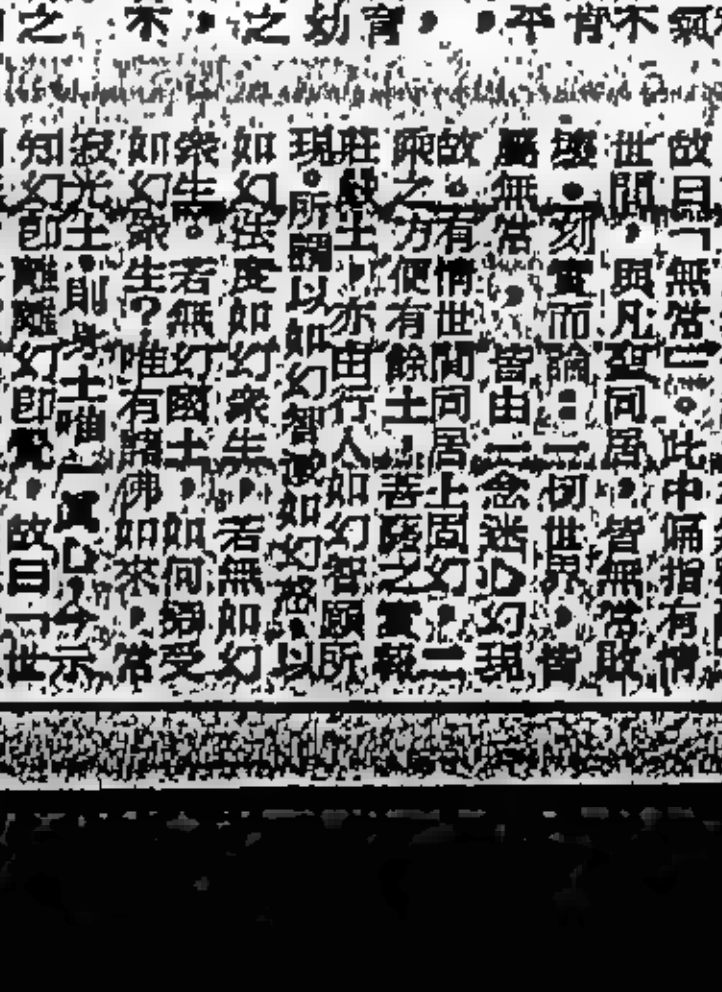 故曰「無常」。此中偏指有情
世間,與凡聖同居,皆無常敗
壞。刻實而論:一切世界,皆
屬無常,皆由一念迷心幻現
故。有情世間同居土固幻,二
乘之方便有餘土,菩薩之實報
莊嚴土,亦由行人如幻智願所
現。所謂以如幻智,如幻,以
如幻法度如幻眾生,若無如幻
眾生。若無幻國土,如何受
如幻眾生?唯有諸佛如來,常
寂光土,則身土唯一真心,今示
知幻即離離幻即覺,故曰「世